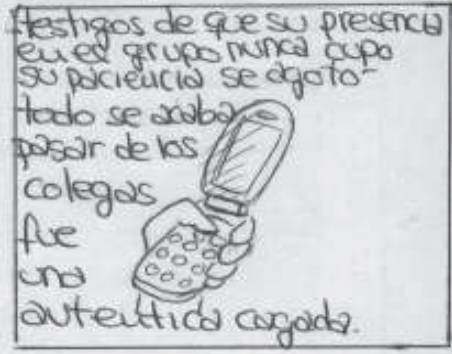 testigos de que su presencia
en el grupo nunca cupo
su paciencia se agoto-
todo se acaba
pasar de los
colegas
fue
una
autenttica cagada.